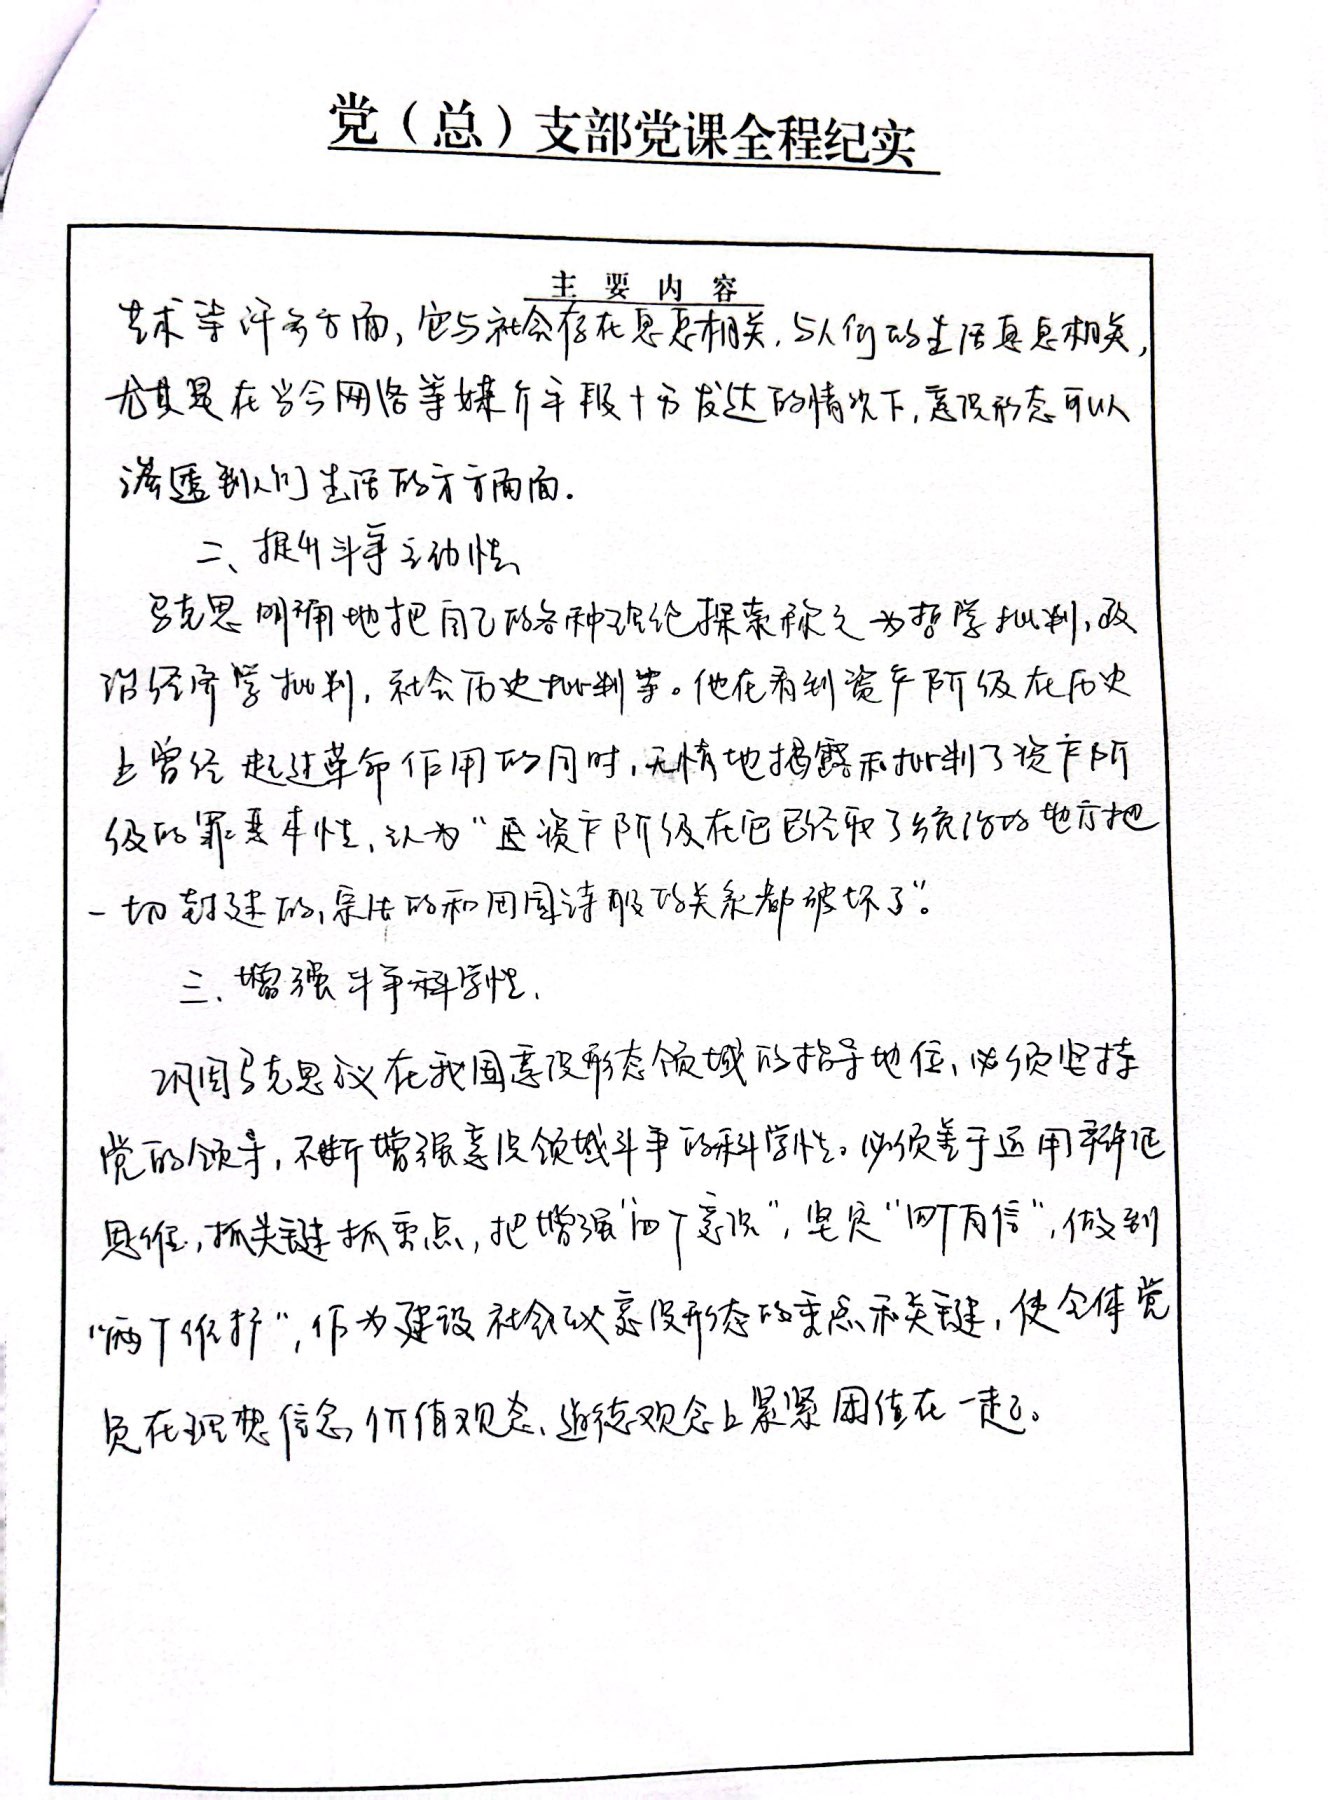 党（总）支部党课全程纪实
主要内容
艺术等许多方面，它与社会存在息息相关，与人们的生活息息相关，
尤其是在当今网络等媒介手段十分发达的情况下，意识形态可以
渗透到人们生活的方方面面.
二、提升斗争主动性、
马克思明确地把自己的各种理论探索称之为哲学批判、政
治经济学批判，社会历史批判等。他在看到资产阶级在历史
上曾经起过革命作用的同时，无情地揭露和批判了资产阶
级的罪恶本性，认为“资产阶级在它已经取了统治的地方把
一切封建的，宗法的和田园诗般的关系都破坏了”。
三、增强斗争科学性.
巩固马克思议在我国意识形态领域的指导地位，必须坚持
党的领导，不断增强意识领域斗争的科学性。必须善于运用辩证
思维，抓关键抓重点，把增强“四个意识”，坚定“四个自信”，做到
“两个维护”，作为建设社会议意识形态的重点和关键，使全体党
员在理想信念，价值观念、道德观念上紧紧团结在一起。